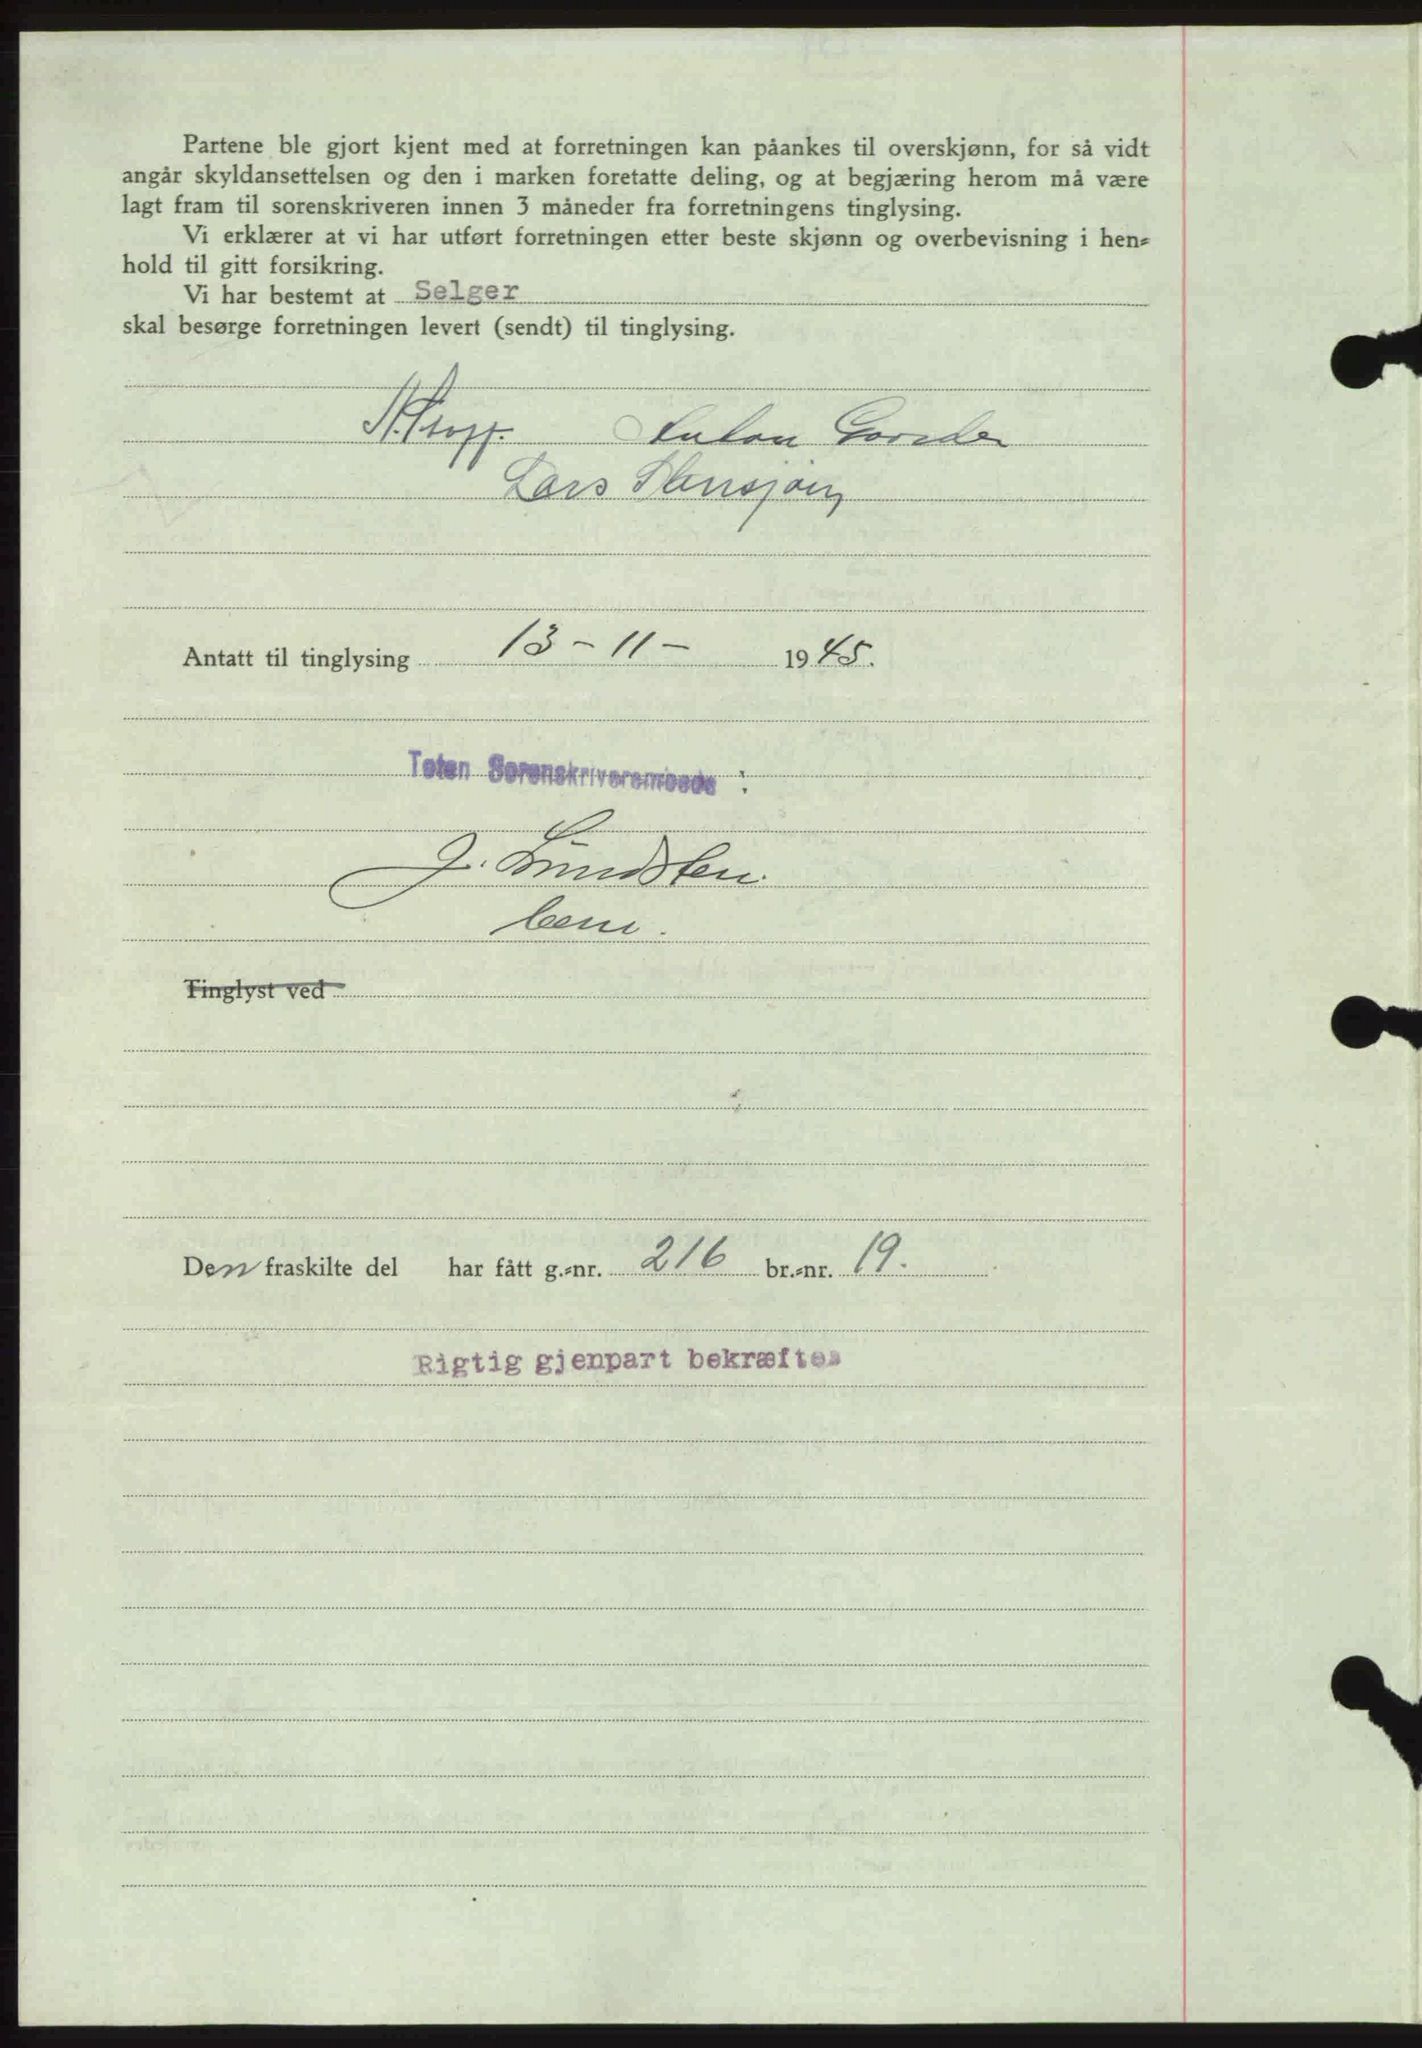 Partene ble gjort kjent med at forretningen kan påankes til overskjønn, for så vidt
angår skyldansettelsen og den i marken foretatte deling, og at begjæring herom må være
lagt fram til sorenskriveren innen 3 måneder fra forretningens tinglysing.
Vi erklærer at vi har utført forretningen etter beste skjønn og overbevisning i hen-
hold til gitt forsikring.
Vi har bestemt at Selger
skal besørge forretningen levert (sendt) til tinglysing.
Anton
Lars
Antatt til tinglysing 13 - 11 - 1945.
Toten Sorenskriverembede :
J. Lundsten
Tinglyst ved
Den fraskilte del har fått g.-nr. 216 br.-nr. 19.
Rigtig gjenpart bekræftes